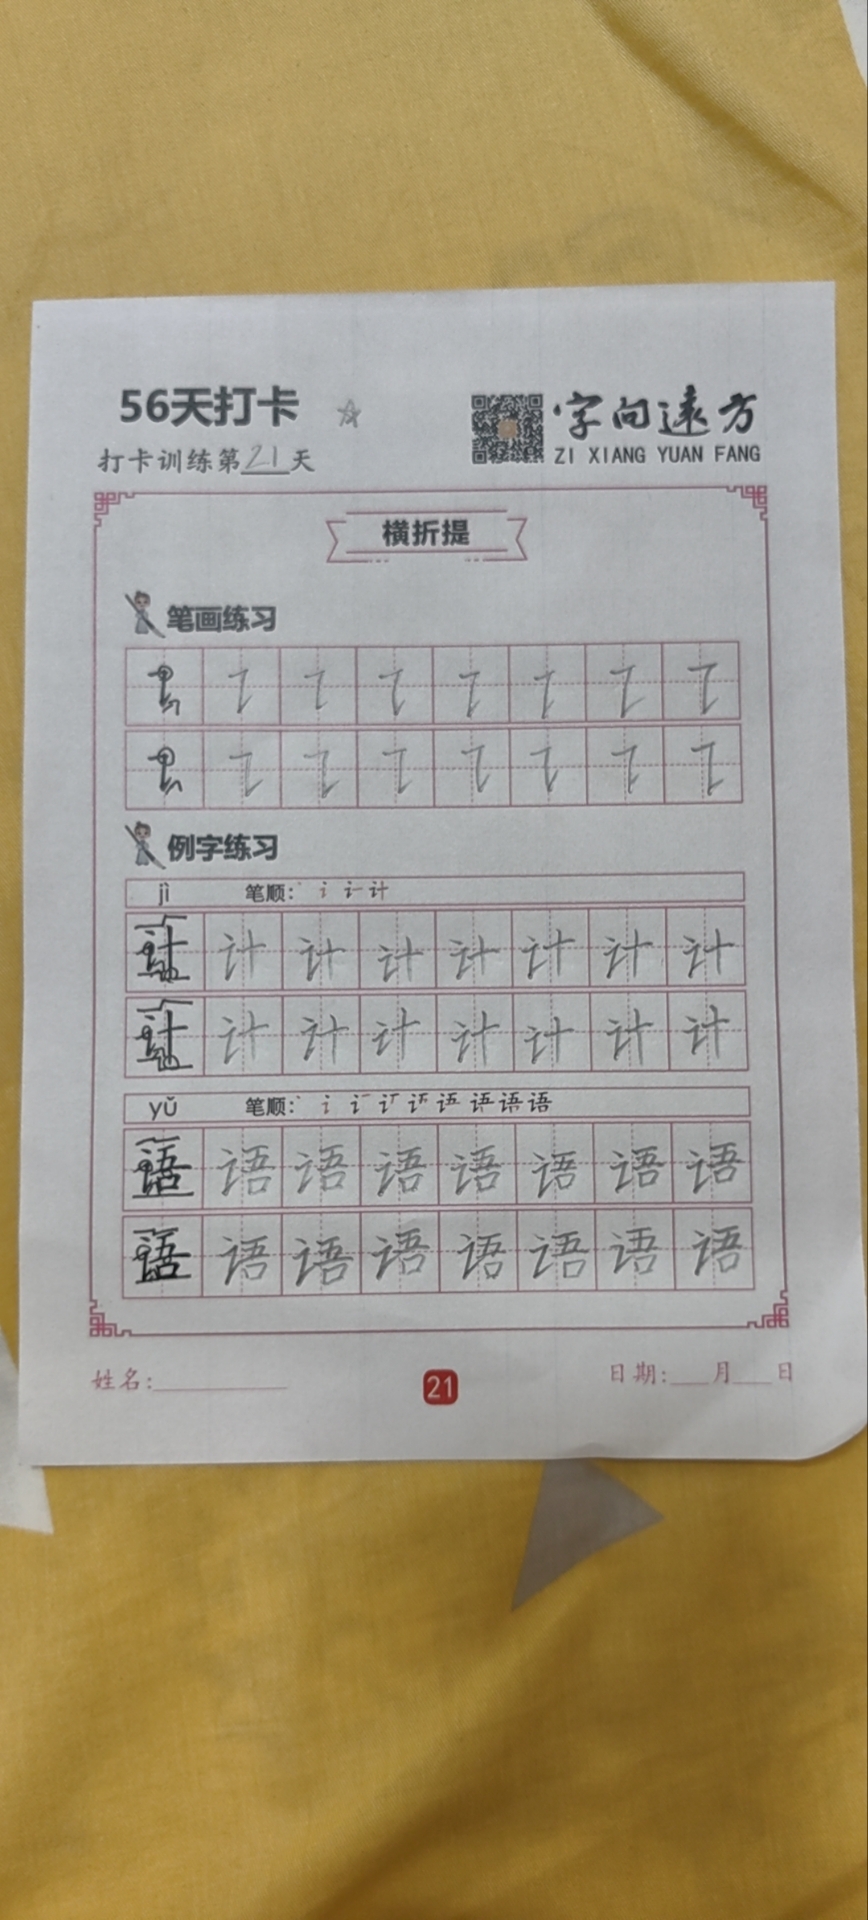 56天打卡
字向远方
打卡训练第21天
ZI XIANG YUAN FANG
横折提
笔画练习
例字练习
jì 笔顺:
计 计 计 计 计 计 计 计
计 计 计 计 计 计 计 计
yǔ 笔顺:
语 语 语 语 语 语 语 语
语 语 语 语 语 语 语 语
姓名: 21 日期: 月 日